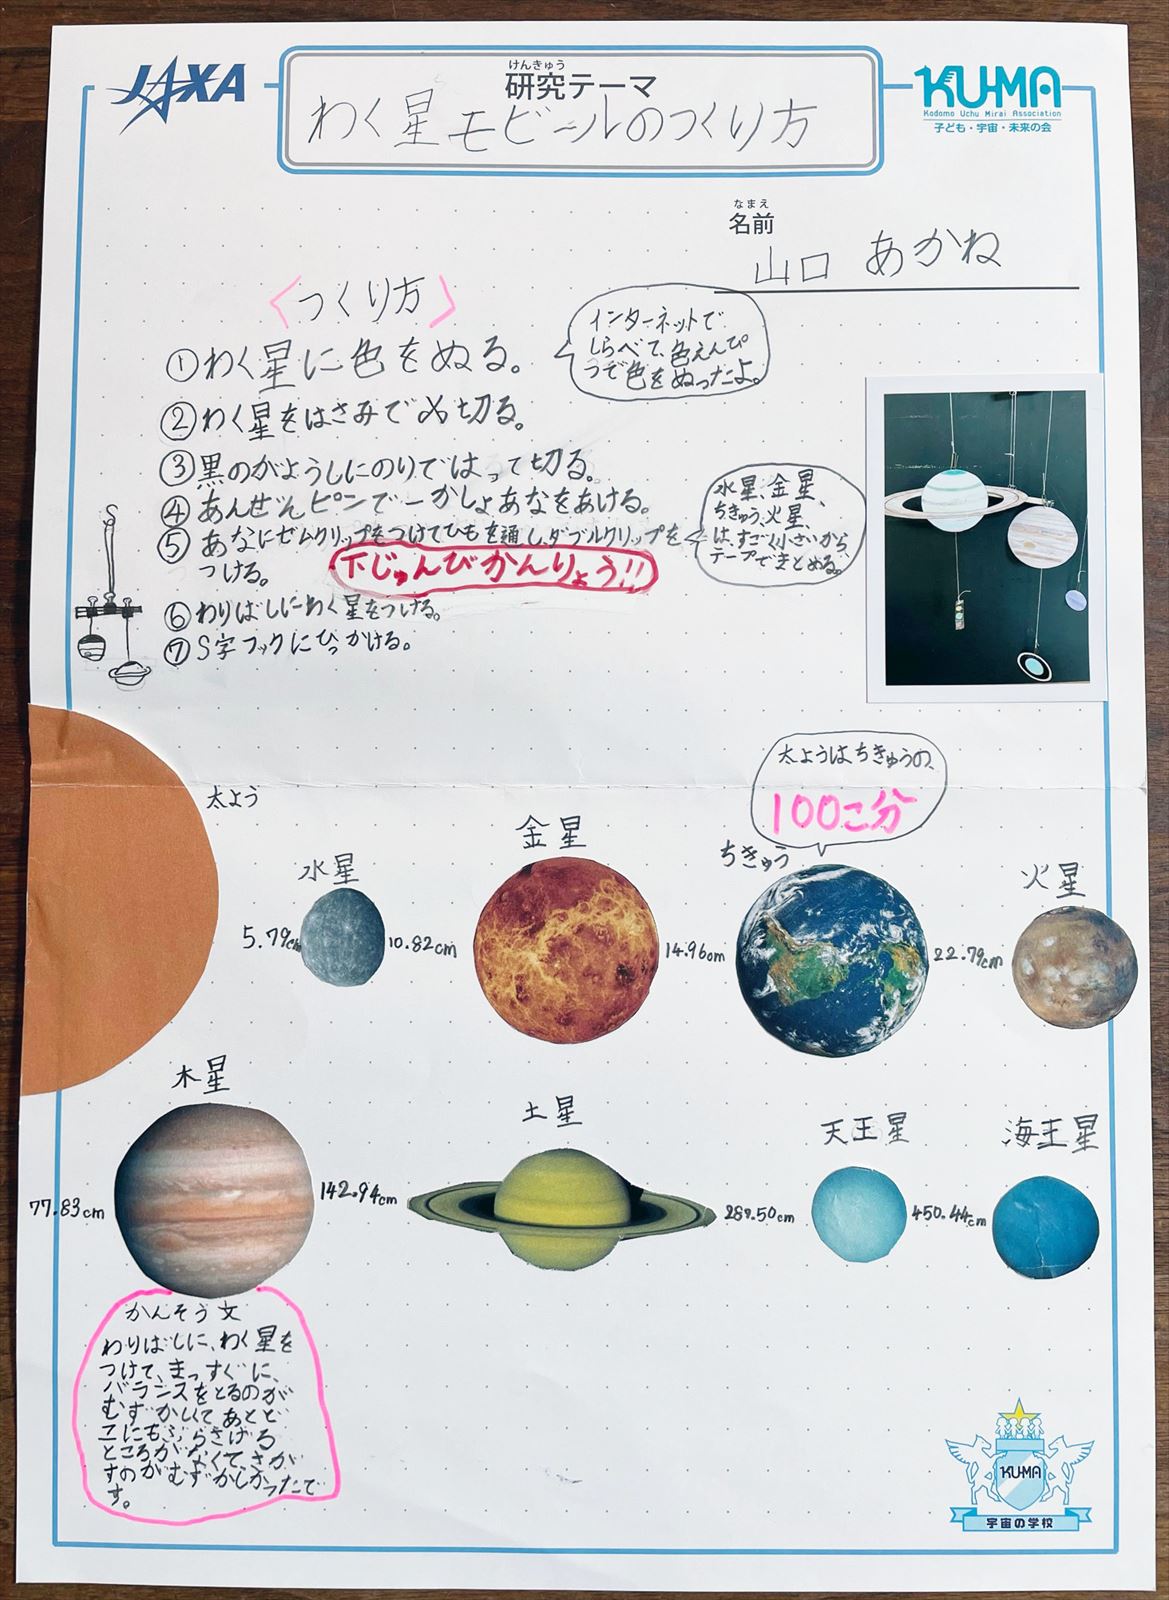 JAXA
けんきゅう
研究テーマ
わく星モビールのつくり方
KU-MA
Kodomo Uchu Mirai Association
子ども・宇宙・未来の会
なまえ
名前
山口 あかね
〈つくり方〉
①わく星に色をぬる。
インターネットで
しらべて、色えんぴ
つぞ色をぬったよ。
②わく星をはさみで切る。
③黒のがようしにのりではって切る。
④あんぜんピンで一かしょあなをあける。
⑤あなにゼムクリップをつけてひもを通し、ダブルクリップを
つける。
水星、金星、
ちきゅう、火星、
は、すごく小さいから
テープでまとめる。
下じゅんびかんりょう!!
⑥わりばしにわく星をつける。
⑦S字フックにひっかける。
太よう
太ようはちきゅうの、
100こ分
水星
金星
ちきゅう
火星
5.79cm
10.82cm
14.96cm
22.79cm
木星
土星
天王星
海王星
77.83cm
142.94cm
287.50cm
450.44cm
かんそう文
わりばしに、わく星を
つけて、まっすぐに、
バランスをとるのが
むずかしくてあとど
こにもぶらさげる
ところがなくて、さが
すのがむずかしかったで
す。
KU-MA
宇宙の学校